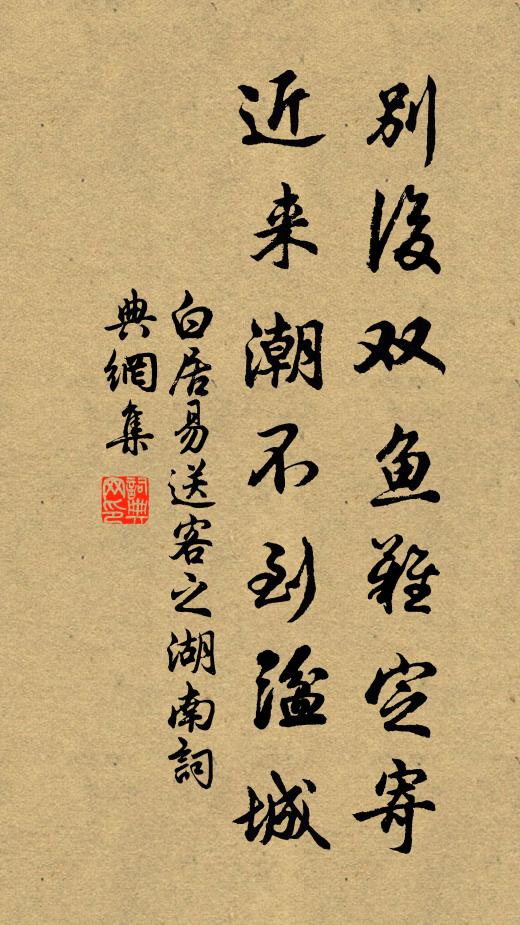 别後双鱼难定寄
近来潮不到湓城
白居易送客之湖南詞
典網集
詞典网印